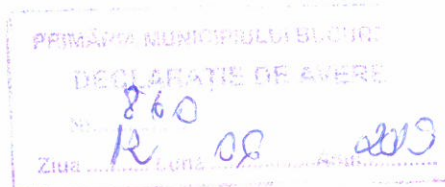 PRIMĂRIA MUNICIPIULUI BUCUR
DECLARAȚIE DE AVERE
Nr. 860
Ziua 12 Luna 06 Anul 2019